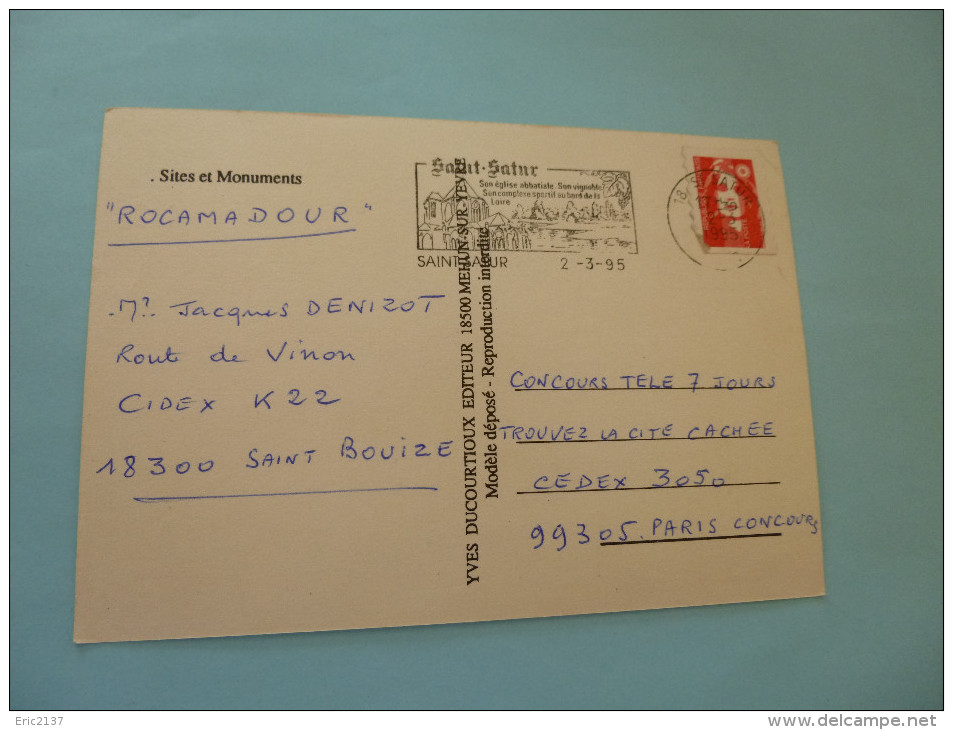 . Sites et Monuments
"ROCAMADOUR"
Mr. Jacques DENIZOT
Route de Vinon
CIDEX K22
18300 SAINT BOUIZE
YVES DUCOURTIOUX EDITEUR 18500 MEHUN-SUR-YEVRE
Modèle déposé - Reproduction interdite
Saint-Satur
Son église abbatiale. Son vignoble
Son complexe sportif au bord de la
Loire
SAINT SATUR 2 -3-95
CONCOURS TELE 7 JOURS
TROUVEZ LA CITE CACHEE
CEDEX 3050
99305. PARIS CONCOURS
Eric2137
delcampe.net